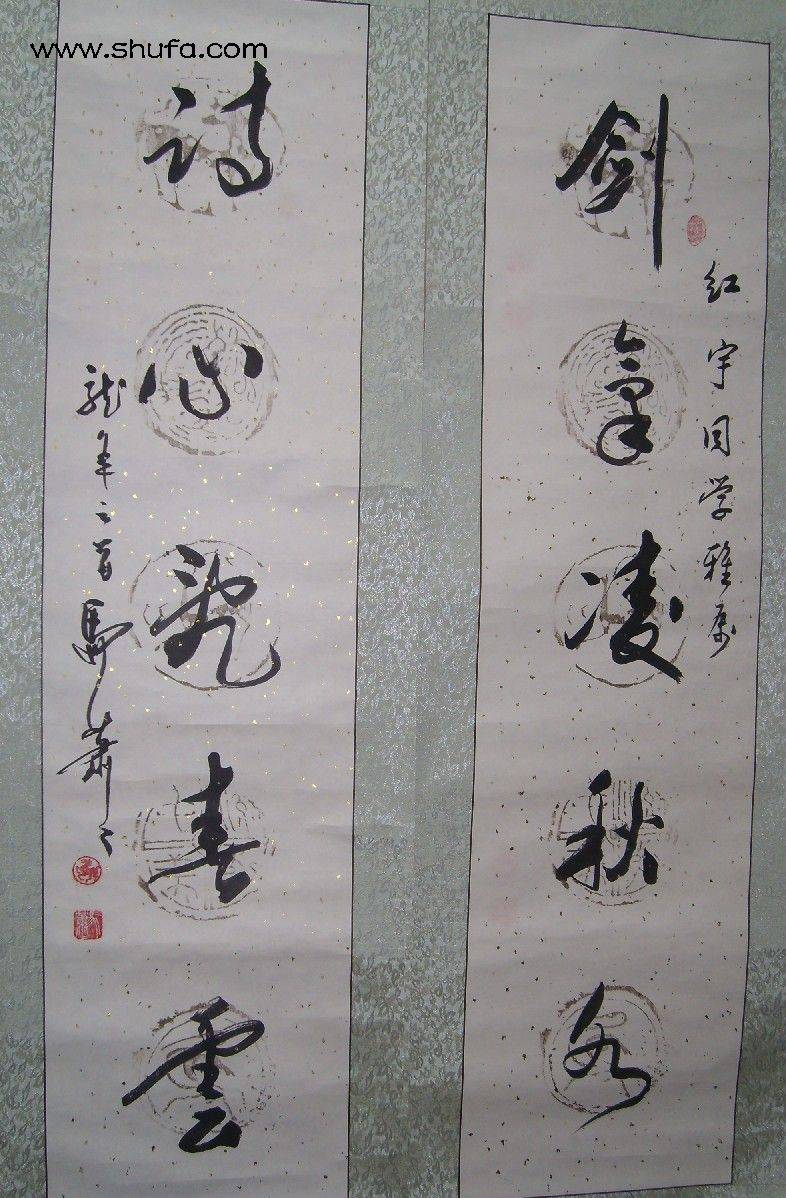 www.shufa.com
红宇同学雅属
剑氣凌秋水
诗心春雲
龙年之首馬蕭々